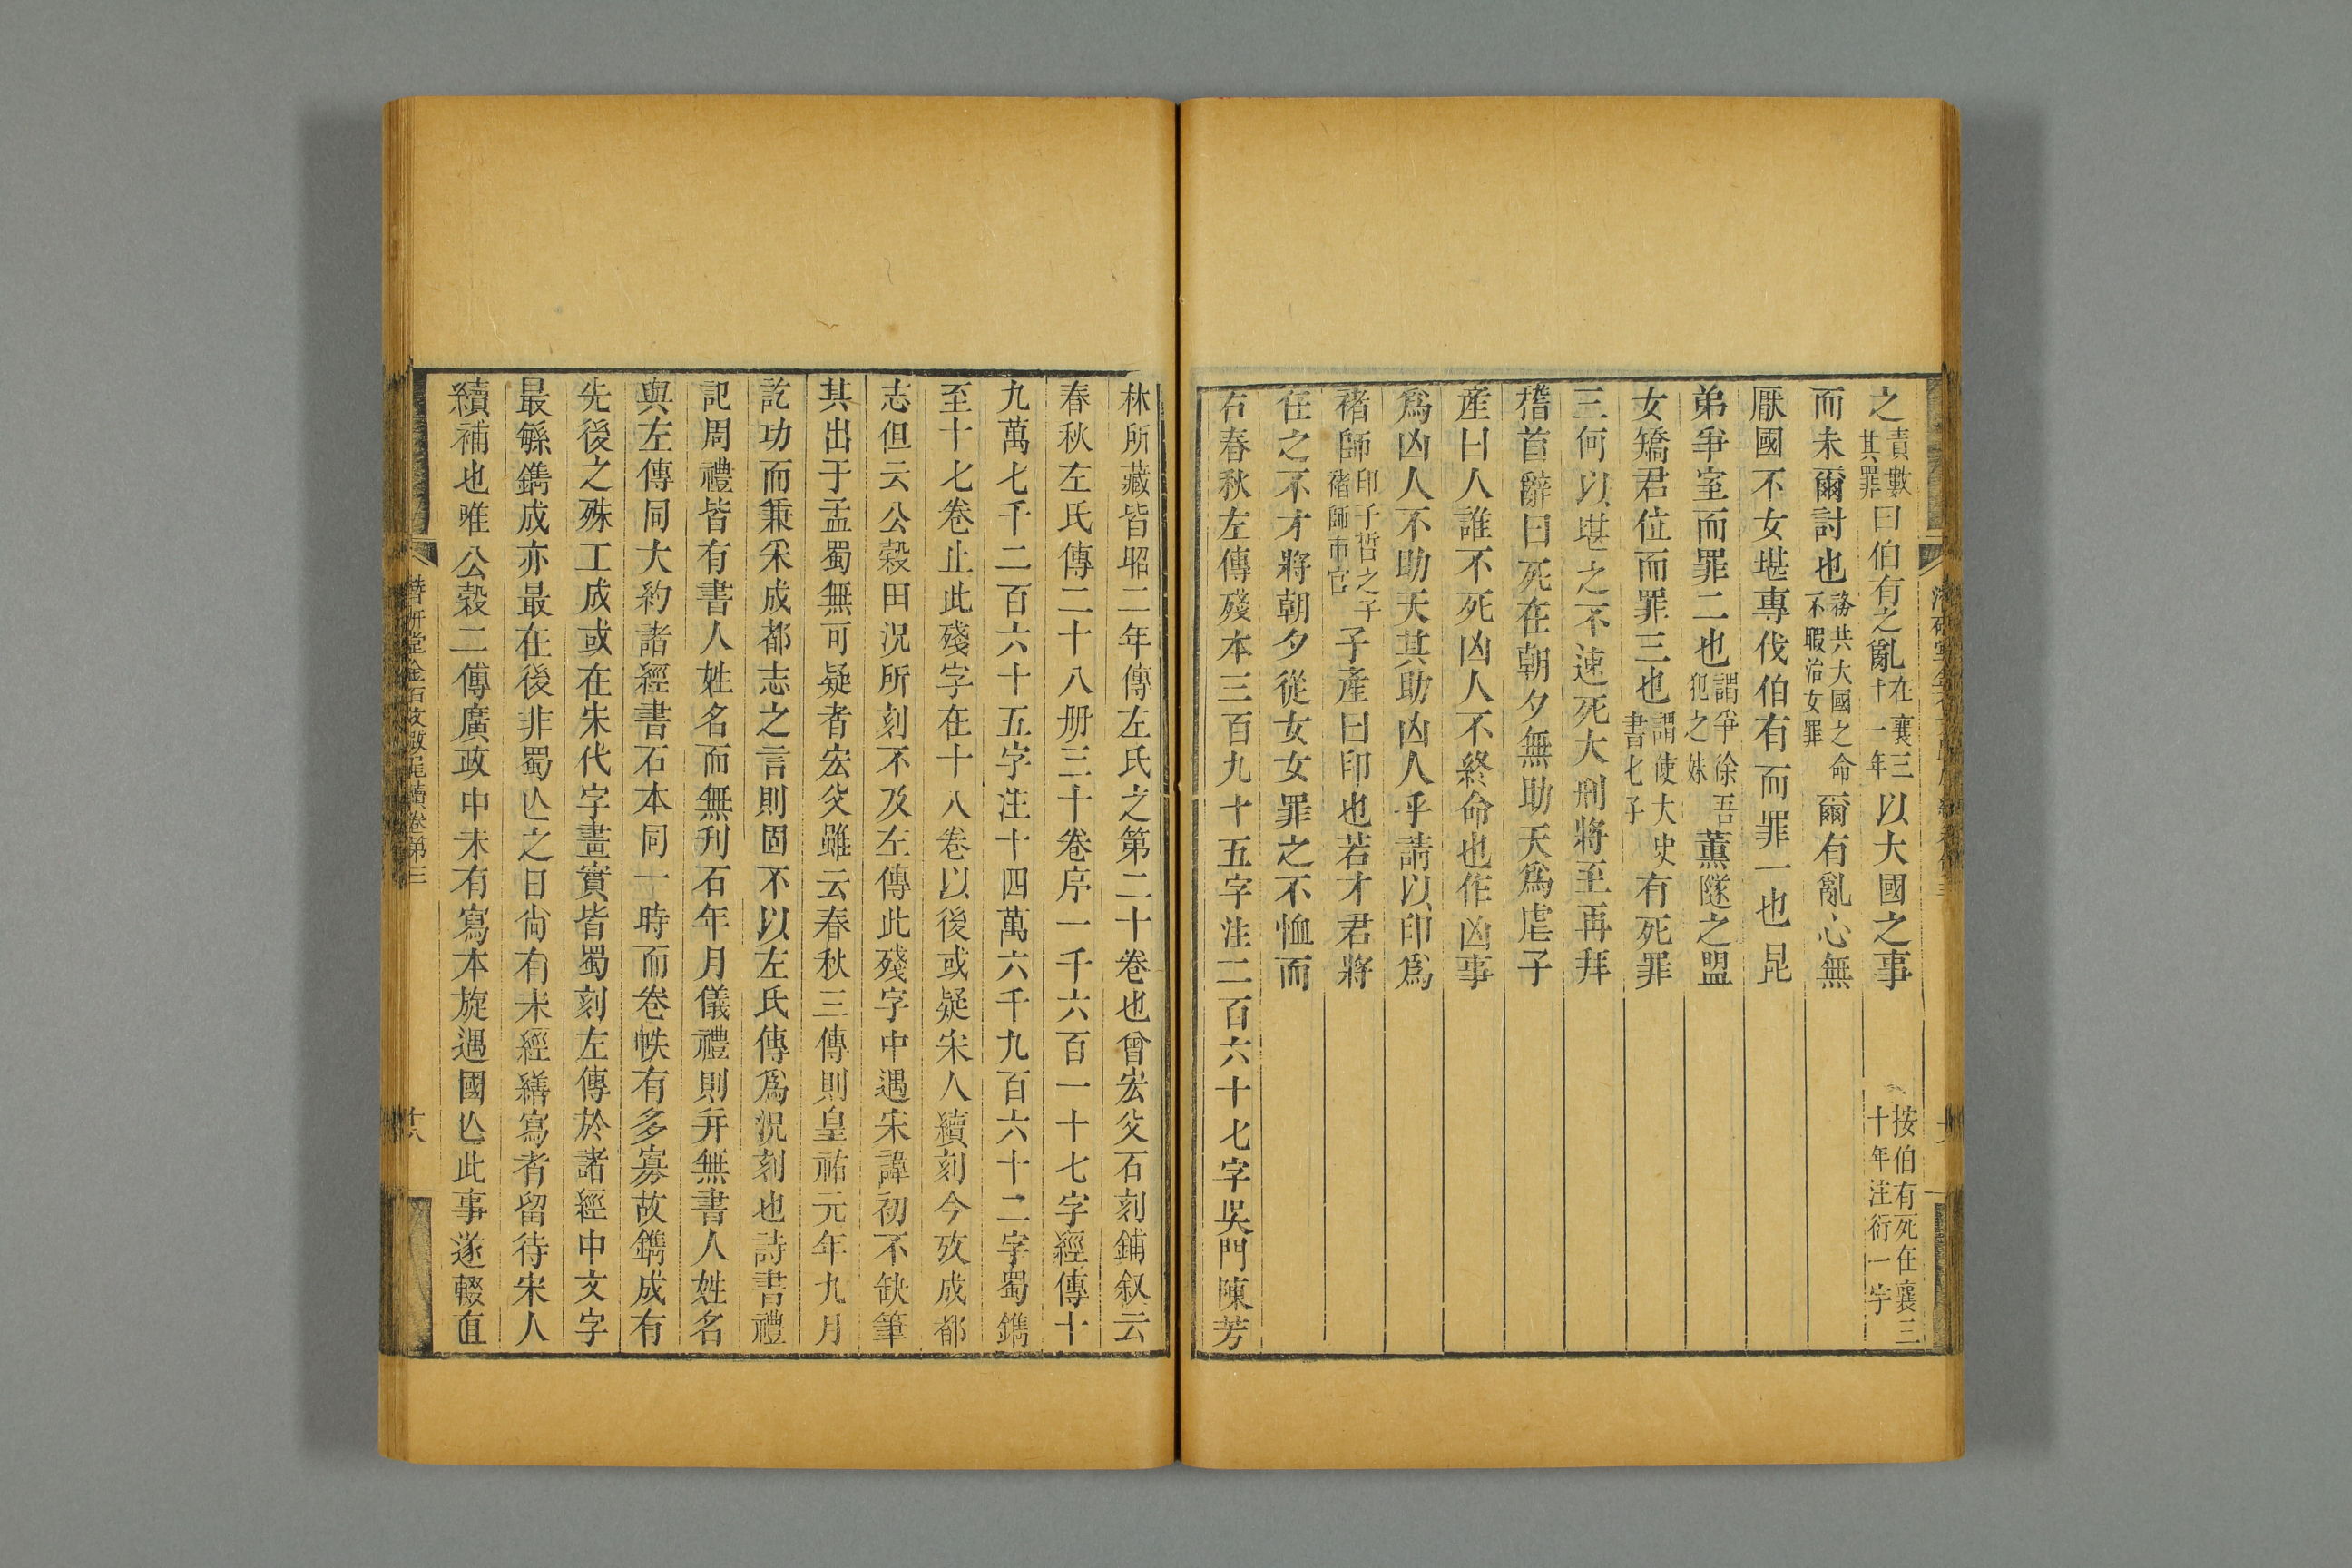 之責數其罪曰伯有之亂在襄三十一年以大國之事 按伯有死在襄三十年注衍一字
而未爾討也務共大國之命不暇治女罪爾有亂心無
厭國不女堪專伐伯有而罪一也昆
弟爭室而罪二也謂爭徐吾犯之妹薰隧之盟
女矯君位而罪三也謂使大史書七子有死罪
三何以堪之不速死大刑將至再拜
稽首辭曰死在朝夕無助天爲虐子
産曰人誰不死凶人不終命也作凶事
爲凶人不助天其助凶人乎請以印爲
褚師印子晳之子褚師市官子產曰印也若才君將
任之不才將朝夕從女女罪之不恤而
右春秋左傳殘本三百九十五字注二百六十七字吳門陳芳
林所藏皆昭二年傳左氏之第二十卷也曾宏父石刻鋪叙云
春秋左氏傳二十八册三十卷序一千六百一十七字經傳十
九萬七千二百六十五字注十四萬六千九百六十二字蜀鐫
至十七卷止此殘字在十八卷以後或疑宋人續刻今攷成都
志但云公穀田況所刻不及左傳此殘字中遇宋諱初不缺筆
其出于孟蜀無可疑者宏父雖云春秋三傳則皇祐元年九月
訖功而兼采成都志之言則固不以左氏傳爲況刻也詩書禮
記周禮皆有書人姓名而無刋石年月儀禮則并無書人姓名
與左傳同大約諸經書石本同一時而卷帙有多寡故鐫成有
先後之殊工成或在宋代字畫實皆蜀刻左傳於諸經中文字
最緐鐫成亦最在後非蜀亾之日尙有未經繕寫者留待宋人
續補也唯公穀二傳廣政中未有寫本旋遇國亾此事遂輟直
潛研堂金石文跋尾續卷第三
十八